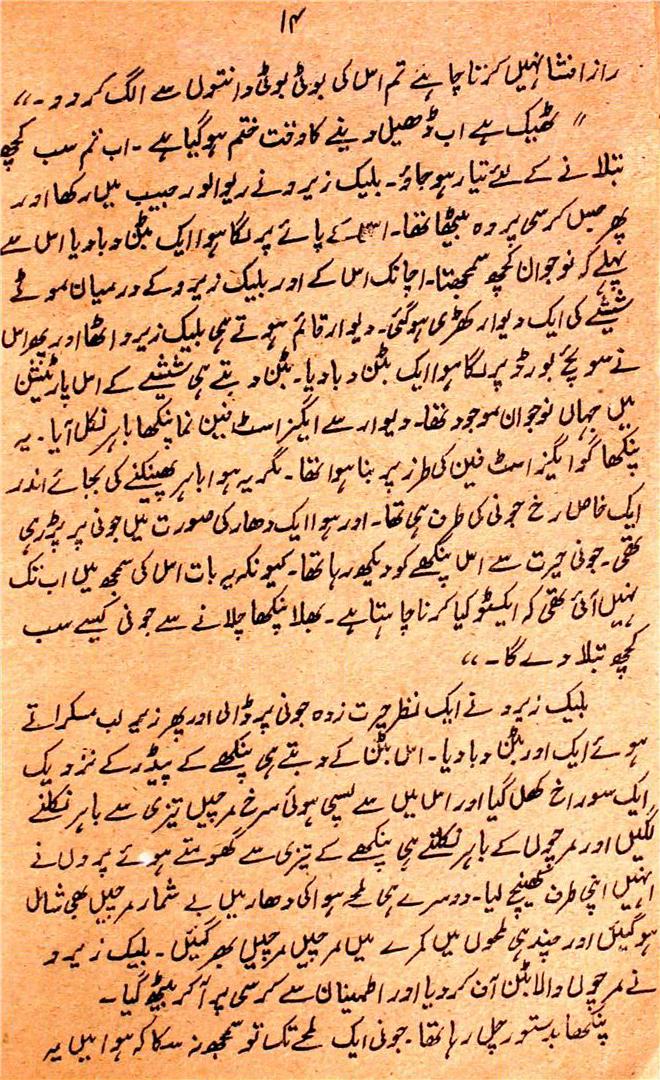 ۱۴
راز افشا نہیں کرنا چاہے تم اس کی بوٹی بوٹی دانتوں سے الگ کر دو۔"
" ٹھیک ہے اب ڈھیل دینے کا وقت ختم ہو گیا ہے۔ اب تم سب کچھ
بتلانے کے لئے تیار ہو جاؤ۔ بلیک زیرو نے ریوالور جیب میں رکھا اور
پھر جس کرسی پر وہ بیٹھا تھا۔ اس کے پائے پر لگا ہوا ایک بٹن دبا دیا اس سے
پہلے کہ نوجوان کچھ سمجھتا۔ اچانک اس کے اور بلیک زیرو کے درمیان موٹے
شیشے کی ایک دیوار کھڑی ہو گئی۔ دیوار قائم ہوتے ہی بلیک زیرو اٹھا اور پھر اس
نے سوئچ بورڈ پر لگا ہوا ایک بٹن دبا دیا۔ بٹن دبتے ہی شیشے کے اس پارٹیشن
میں جہاں نوجوان موجود تھا۔ دیوار سے ایگزاسٹ فین نما پنکھا باہر نکل آیا۔ یہ
پنکھا گو ایگزاسٹ فین کی طرز پر بنا ہوا تھا۔ مگر یہ ہوا باہر پھینکنے کی بجائے اندر
ایک خاص رخ جونی کی طرف ہی تھا۔ اور ہوا ایک دھار کی صورت میں جونی پر پڑ رہی
تھی۔ جونی حیرت سے اس پنکھے کو دیکھ رہا تھا۔ کیونکہ یہ بات اس کی سمجھ میں اب تک
نہیں آئی تھی کہ ایکسٹو کیا کرنا چاہتا ہے۔ بھلا پنکھا چلانے سے جونی کیسے سب
کچھ بتلا دے گا۔"
بلیک زیرو نے ایک نظر حیرت زدہ جونی پر ڈالی اور پھر زیر لب مسکراتے
ہوئے ایک اور بٹن دبا دیا۔ اس بٹن کے دبتے ہی پنکھے کے پیڈر کے نزدیک
ایک سوراخ کھل گیا اور اس میں سے پسی ہوئی سرخ مرچیں تیزی سے باہر نکلنے
لگیں اور مرچوں کے باہر نکلتے ہی پنکھے کے تیزی سے گھومتے ہوئے پروں نے
انہیں اپنی طرف کھینچ لیا۔ دوسرے ہی لمحے ہوا کی دھار میں بے شمار مرچیں بھی شامل
ہو گئیں اور چند ہی لمحوں میں کمرے میں مرچیں مرچیں بھر گئیں۔ بلیک زیرو
نے مرچوں والا بٹن آن کر دیا اور اطمینان سے کرسی پر آ کر بیٹھ گیا۔
پنکھا بدستور چل رہا تھا۔ جونی ایک لمحے تک تو سمجھ نہ سکا کہ ہوا میں یہ